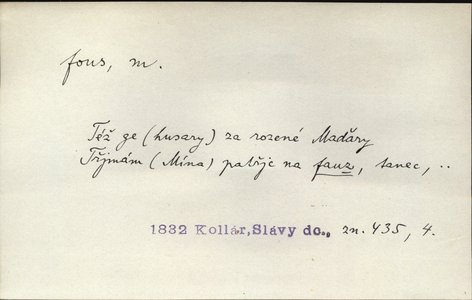 fous, m.
Též ge (husary) za rozené Maďary
Třjmám (Mína) patřjc na fauz, tanec, ..
1832 Kollár,Slávy dc., zn. 435, 4.